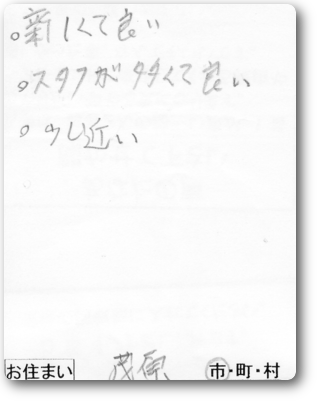 。新しくて良い
。スタフが多くて良い
。少し近い
お住まい 茂原 市・町・村